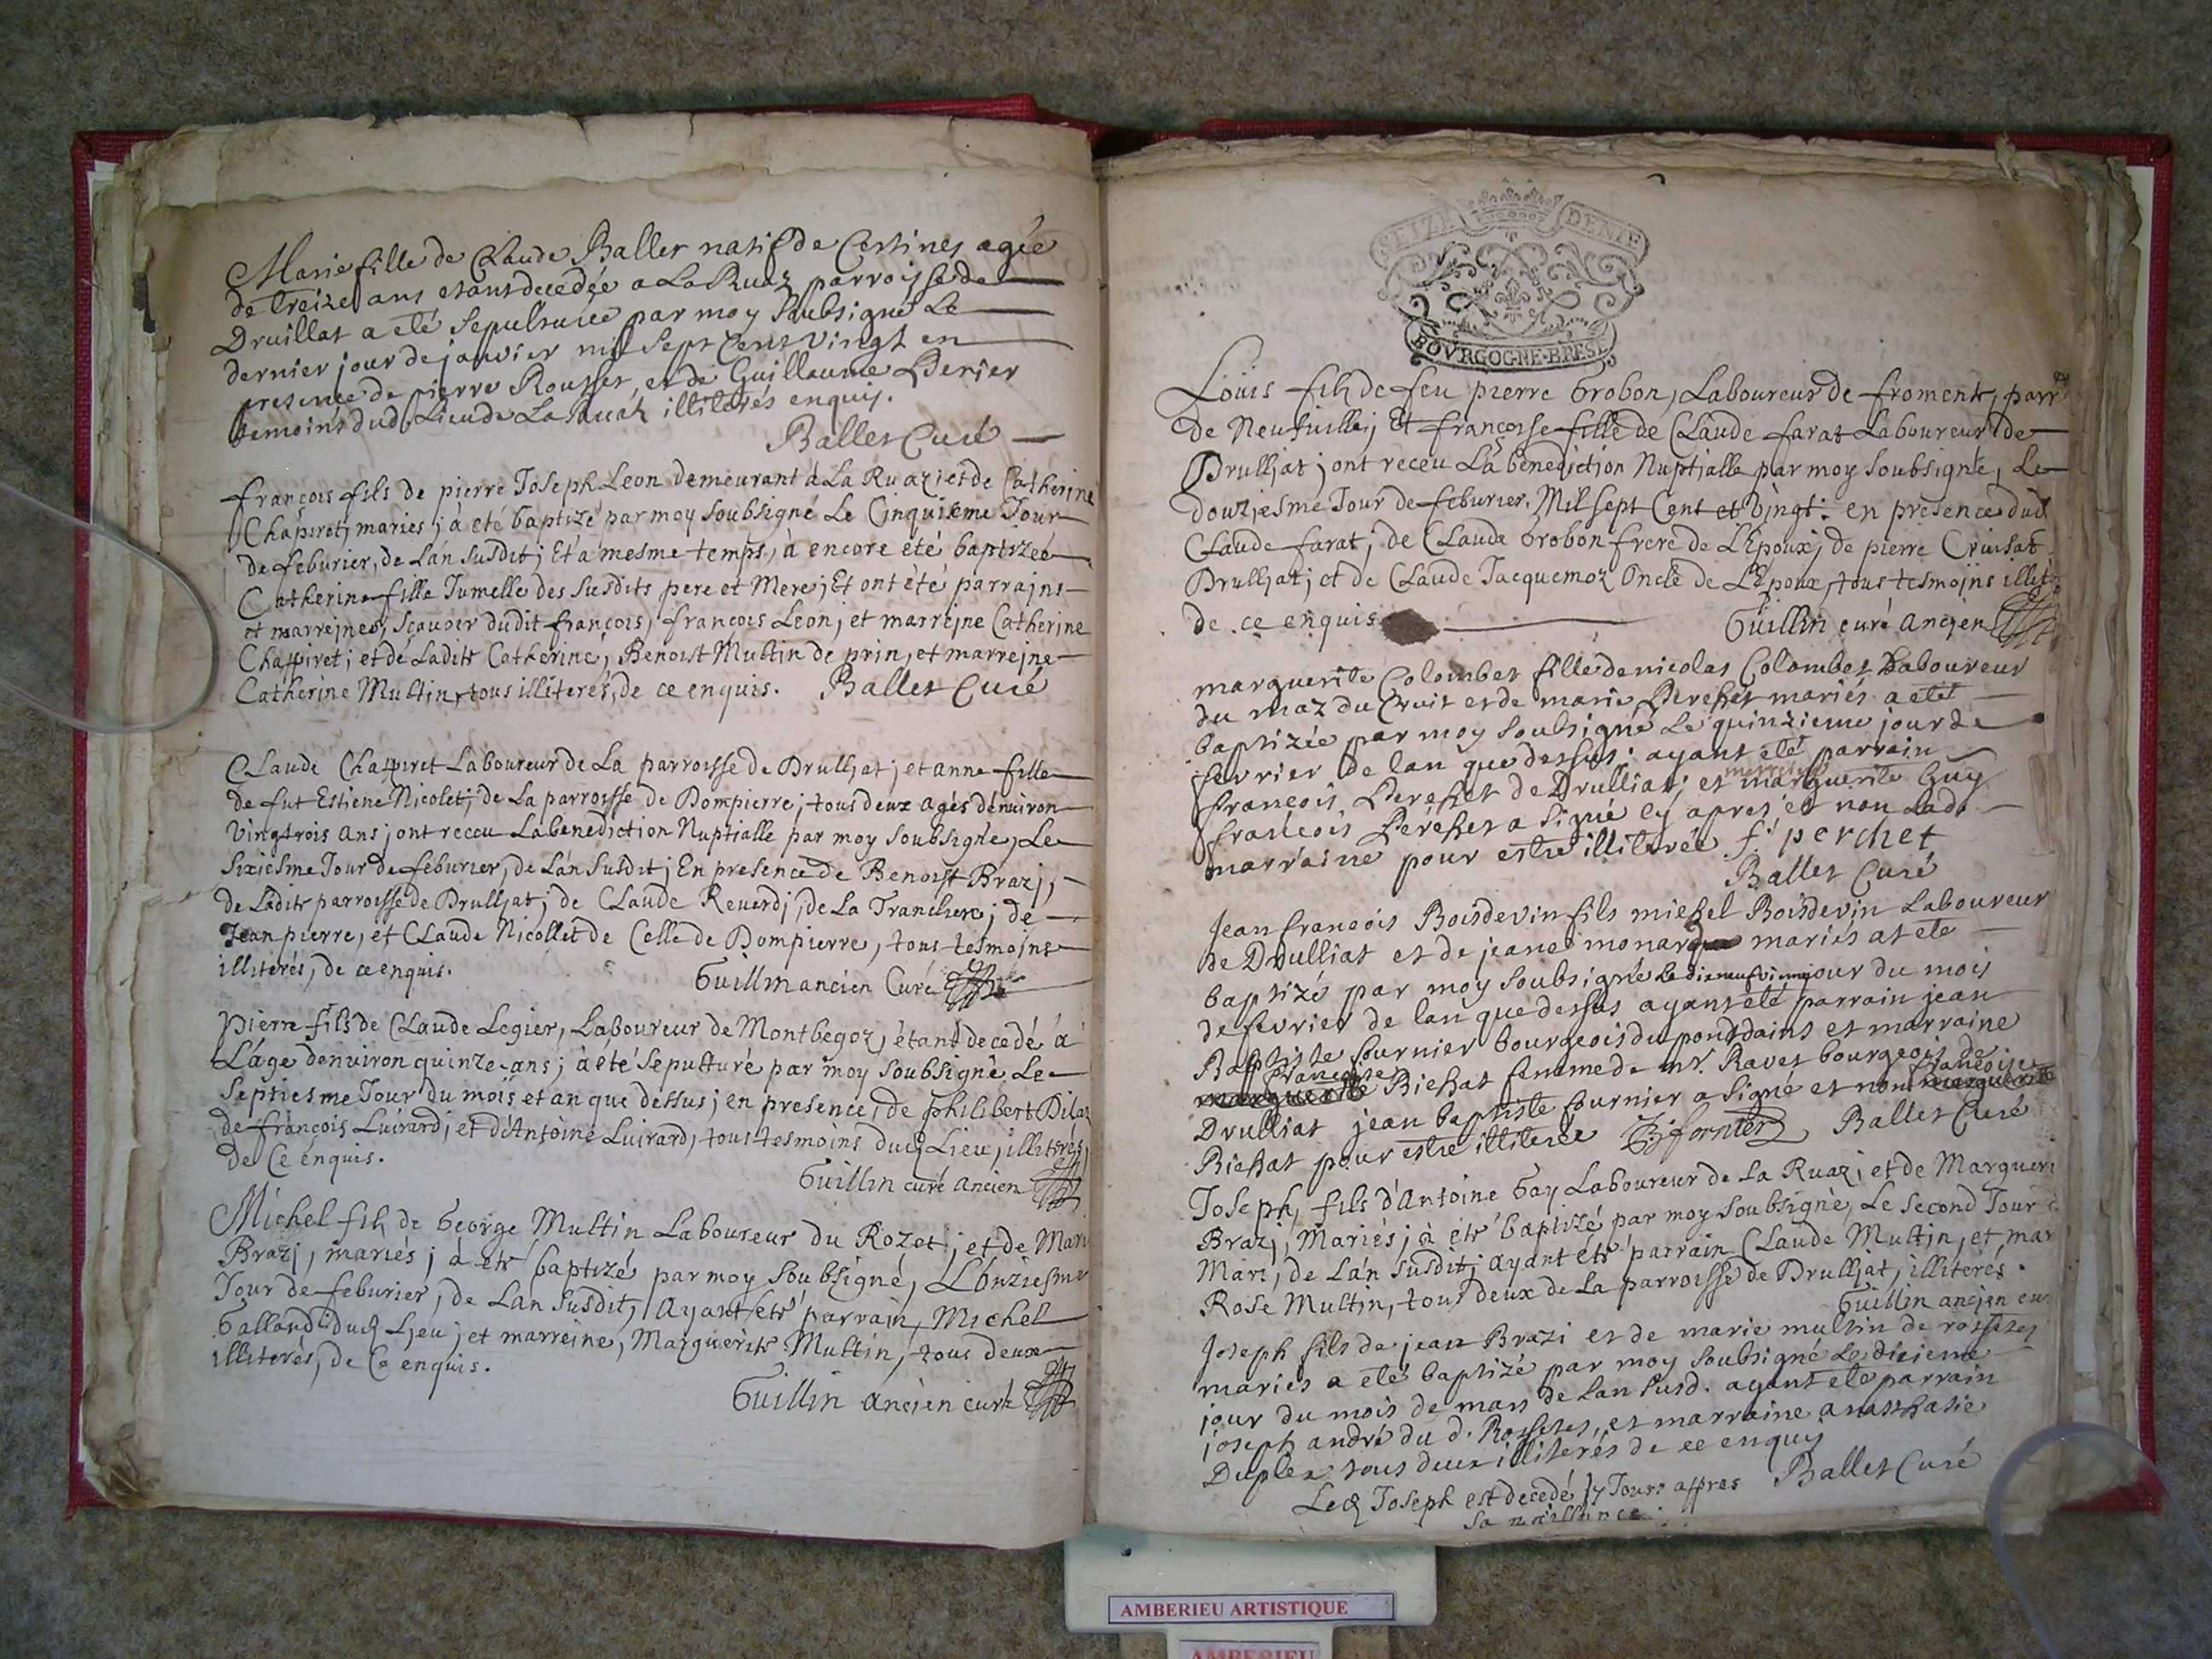 Marie fille de Claude Ballet natif de Certines agée
de Treize ans etant decedée a La Ruaz parroisse de
Druillat a eté sepulturée par moy soubsigné Le
dernier jour de janvier mil sept Cent vingt en
presence de pierre Rousset, et de Guillaume
temoins dud. Lieu de La Ruaz illiterés enquis.
Ballet Curé
françois fils de pierre Joseph Leon demeurant à La Ruaz; et de Catherine
Chapiret, mariés; à eté baptizé par moy soubsigné Le Cinquiéme Jour
de feburier, de Lan susdit; Et à mesme temps, à encore eté baptizée
Catherine fille Jumelle des susdits pere et Mere; Et ont été parrains
et marreines, sçavoir dudit françois, françois Leon; et marreine Catherine
Chappiret; et de Ladite Catherine, Benoist Multin de prin, et marreine
Catherine Multin, tous illiterés, de ce enquis. Ballet Curé
Claude Chappiret Laboureur de La parroisse de Drulljat; et anne fille
de fut Estiene Nicolet; de La parroisse de Dompierre; tous deux agés dénuiron
Vingtrois ans; ont receu La benediction Nuptialle par moy soubsigné, Le
sixiesme Jour de feburier, de Lán susdit; En presence de Benoist Brazj,
de Ladite parroisse de Drulljat; de Claude Reuerdj, de La Trancliere; de
Jean pierre, et Claude Nicollet de Celle de Dompierre, tous tesmoins
illiterés, de ce enquis. Guillin ancien Curé
Pierre fils de Claude Legier, Laboureur de Montbegoz, étant decedé à
L'áge denuiron quinze ans; à été sepulturé par moy soubsigné Le
septiesme Jour du moïs et an que dessus; en presence, de philibert
de françois Luirard; et d'Antoine Luirard, tous tesmoins dud Lieu, illiterés,
de Ce enquis.
Guillin curé ancien
Michel filz de George Multin Laboureur du Rozet; et de Mari
Brazj, mariés; à ete baptizé par moy soubsigné, L'ónziesme
Jour de feburier, de Lan susdit, Ayant ete parrain, Michel
Galland dud Ljeu; et marreine, Marguerite Multin, tous deux
illiterés, de Ce enquis.
Guillin ancien curé
SEIZE DENIE
BOVRGOGNE-BRESE
Loüis filz de feu pierre Grobon, Laboureur de froment, parr
de Neufuille; Et françoise fille de Claude farat Laboureur de
Drulljat; ont receu La benediction Nuptjalle par moy soubsigné, Le
douziesme Jour de feburier, Mil sept Cent et Vingt: en presence dud
Claude farat; de Claude Grobon frere de L'Epoux; de pierre Cruisat
Drulljat; et de Claude Jacquemoz Oncle de L'Epoux, tous tesmoins illit
de ce enquis Guillin curé Ancjen
marguerite Colombet fille de nicolas Colombet Laboureur
du maz du Cruit et de marie Perchet mariés a eté
baptizée par moy soubsigné Le quinzieme jour de
fevrier de lan que dessus; ayant eté parrain
françois Perchet de Drulliat; et marguerite Guy
françois Perchet a signé cy apres, et non lade
marraine pour estre illiterée f. perchet
Ballet Curé
Jean françois Boisdevin fils michel Boisdevin Laboureur
de Drulliat et de jeane monar mariés at eté
baptizé par moy soubsigné Le dixneufvieme jour du mois
de fevrier de lan que dessus ayant eté parrain jean
Baptiste fournier bourgeois du pont dains et marraine
françoise
Richat femme de mr. Ravet bourgeois de
Drulliat jean baptiste fournier a signé et non françoise
Richat pour estre illiterée fornier Ballet Curé
Joseph, fils d'Antoine Gay Laboureur de La Ruaz; et de Margueri
Brazj, Mariés; à ete baptizé par moy soubsigné, Le second Jour d
Mars, de Lán susdit; ayant ete parrain Claude Multin, et mar
Rose Multin, tous deux de La parroisse de Drulljat, illiterés.
Guillin ancjen cur
Joseph fils de jean Brazi et de marie multin de rossetes
mariés a eté baptizé par moy soubsigné Le dixieme
jour du mois de mars de Lan susd. ayant eté parrain
joseph andré du d. Rossetes, et marraine anasthasie
Duplex tous deux illiterés de ce enquis
Ballet Curé
Led Joseph est decedé 17 Jours apres
sa naissance.
AMBERIEU ARTISTIQUE
AMBERIEU